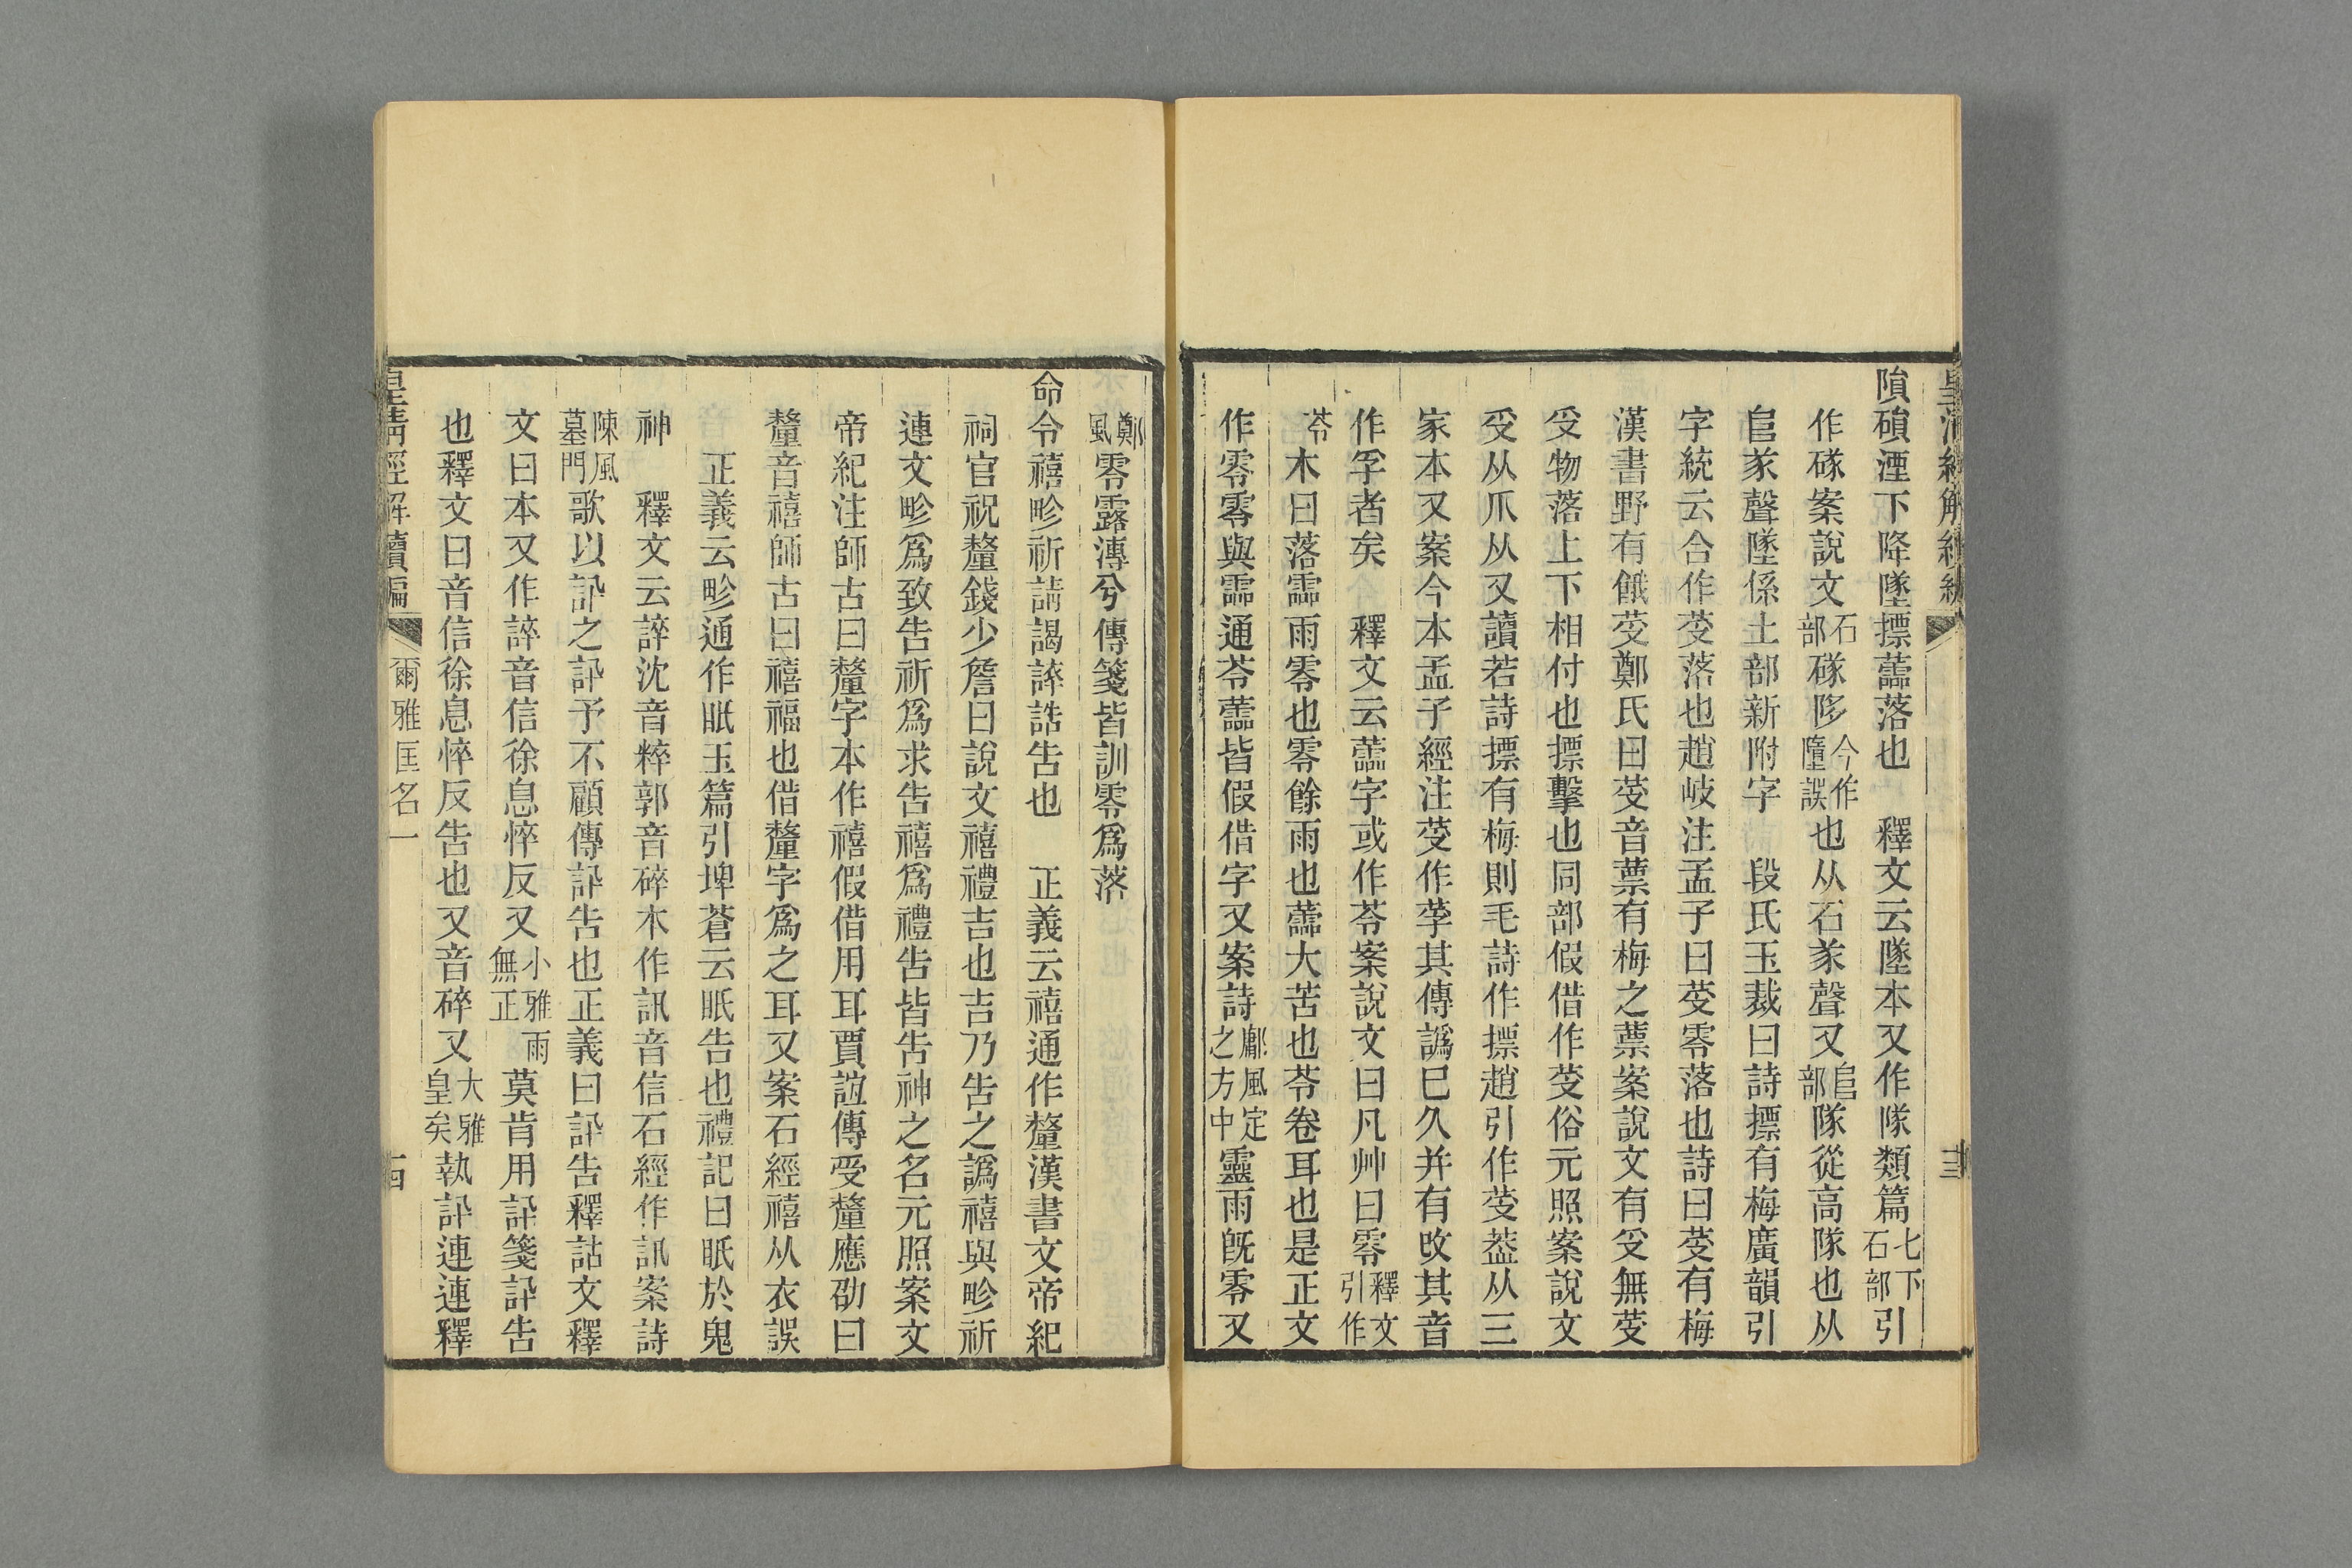 隕磒湮下降墜摽蘦落也　釋文云墜本又作隊類篇七下石部引
作䃍案說文石部䃍陊今作墮誤也从石㒸聲又𨸏部隊從高隊也从
𨸏㒸聲墜係土部新附字　段氏玉裁曰詩摽有梅廣韻引
字統云合作荽落也趙岐注孟子曰荽零落也詩曰荽有梅
漢書野有餓荽鄭氏曰荽音蔈有梅之蔈案說文有𠬪無荽
𠬪物落上下相付也摽擊也同部假借作荽俗元照案說文
𠬪从爪从又讀若詩摽有梅則毛詩作摽趙引作荽葢从三
家本又案今本孟子經注荽作莩其傳譌巳久并有改其音
作孚者矣　釋文云蘦字或作苓案說文曰凡艸曰零釋文引作
苓木曰落霝雨零也零餘雨也蘦大苦也苓卷耳也是正文
作零零與霝通苓蘦皆假借字又案詩鄘風定之方中靈雨旣零又
鄭風零露漙兮傳箋皆訓零爲落
命令禧畛祈請謁誶誥告也　正義云禧通作釐漢書文帝紀
祠官祝釐錢少詹曰說文禧禮吉也吉乃告之譌禧與畛祈
連文畛爲致告祈爲求告禧爲禮告皆告神之名元照案文
帝紀注師古曰釐字本作禧假借用耳賈誼傳受釐應劭曰
釐音禧師古曰禧福也借釐字爲之耳又案石經禧从衣誤
正義云畛通作眂玉篇引埤蒼云眂告也禮記曰眂於鬼
神　釋文云誶沈音粹郭音碎本作訊音信石經作訊案詩
陳風墓門歌以訊之訊予不顧傳訊告也正義曰訊告釋詁文釋
文曰本又作誶音信徐息悴反又小雅雨無正莫肯用訊箋訊告
也釋文曰音信徐息悴反告也又音碎又大雅皇矣執訊連連釋
皇清經解續編　爾雅匡名一　十四